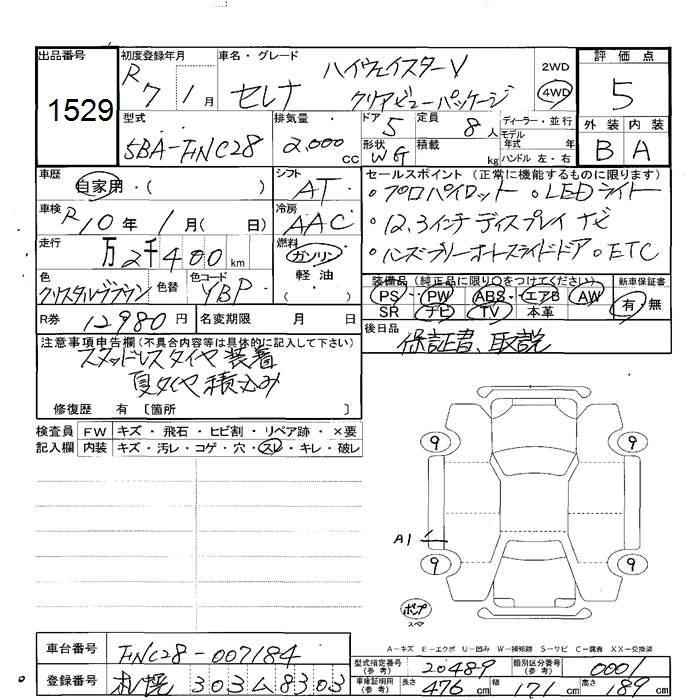 出品番号 初度登録年月 車名・グレード 評価点
1529 R 7 1月 セレナ ハイウェイスターV 2WD 5
クリアビューパッケージ 4WD
型式 排気量 ドア 定員 ディーラー・並行 外装 内装
5BA-FNC28 2,000cc 5 8人 モデル年式 年式 B A
形状 WG 積載 kg ハンドル 左・右
車歴 自家用・( ) シフト AT セールスポイント (正常に機能するものに限ります)
・プロパイロット ・LEDライト
車検 R10年 1月( 日) 冷房 AAC ・12.3インチディスプレイ ナビ
走行 万2千400km 燃料 ガソリン ・ハンズフリーオートスライドドア ・ETC
軽油
( )
色 クリスタルブラウン 色替 色コード YBP 装備品(純正品に限り○をつけてください) 新車保証書
PS・PW・ABS・エアB・AW 有・無
SR・ナビ・TV・本革
R券 12980円 名変期限 月 日 後日品 保証書、取説
注意事項申告欄(不具合内容等は具体的に記入して下さい)
スタッドレスタイヤ装着
夏タイヤ積込み
修復歴 有〔箇所 〕
検査員 FW キズ・飛石・ヒビ割・リペア跡・×要
記入欄 内装 キズ・汚レ・コゲ・穴・スレ・キレ・破レ
9 9
A1
9 9
ポンプ
スペア
A-キズ E-エクボ U-凹み W-補修跡 S-サビ C-腐食 XX-交換済
車台番号 FNC28-007184 型式指定番号(参考) 20489 類別区分番号(参考) 0001
登録番号 札幌 303 ム 8303 車庫証明用(参考) 長さ 476cm 幅 171cm 高さ 189cm